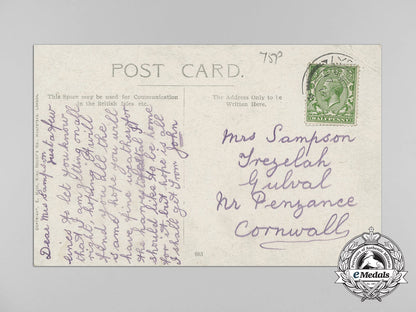 75P
POST CARD.
This Space may be used for Communication
in the British Isles etc.
The Address Only to be
Written Here.
HALFPENNY
Dear Mrs Sampson
Just a few
lines to let you know
that I am getting on all
right, hoping it will
find you all the
same, hope you will
have fine weather for
the
should like to be home
for it but hope is all
I shall get From John
Mrs Sampson
Trezelah
Gulval
Nr Penzance
Cornwall